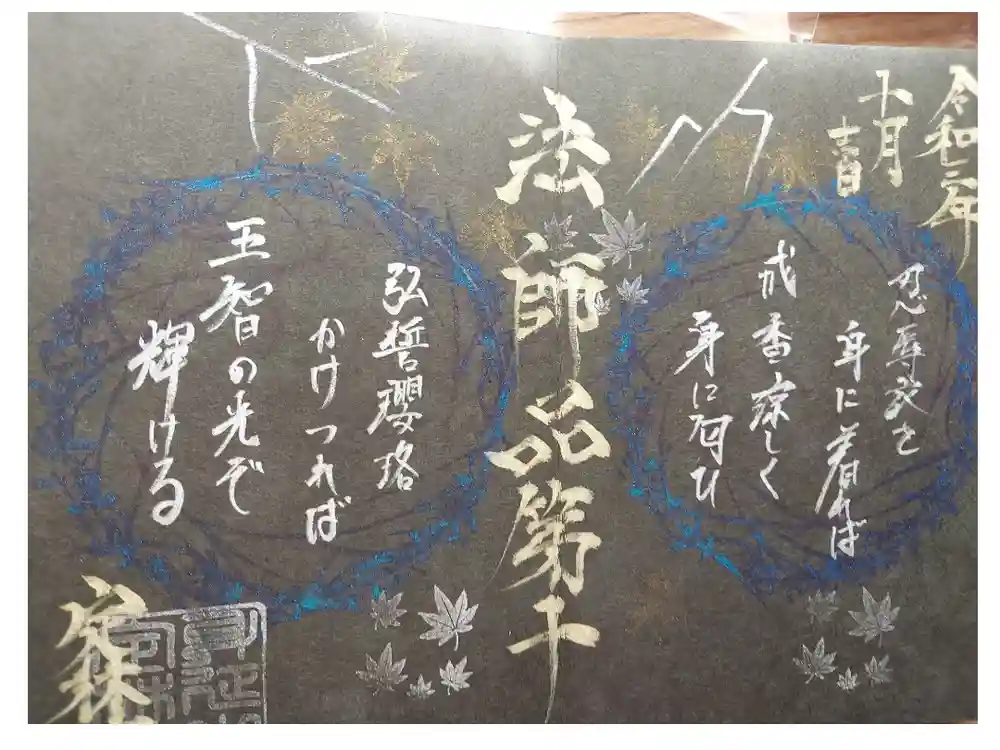 令和二年
十月
吉日
忍辱衣を
身に着れば
戒香涼しく
身に匂ひ
法師品第十
弘誓瓔珞
かけつれば
五智の光ぞ
輝ける